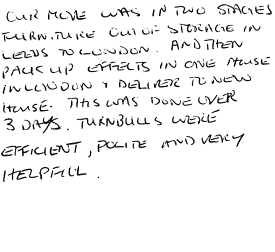 OUR MOVE WAS IN TWO STAGES
FURNITURE OUT OF STORAGE IN
LEEDS TO LONDON. AND THEN
PACK UP EFFECTS IN ONE HOUSE
IN LONDON & DELIVER TO NEW
HOUSE. THIS WAS DONE OVER
3 DAYS. TURNBULLS WERE
EFFICIENT, POLITE AND VERY
HELPFULL.